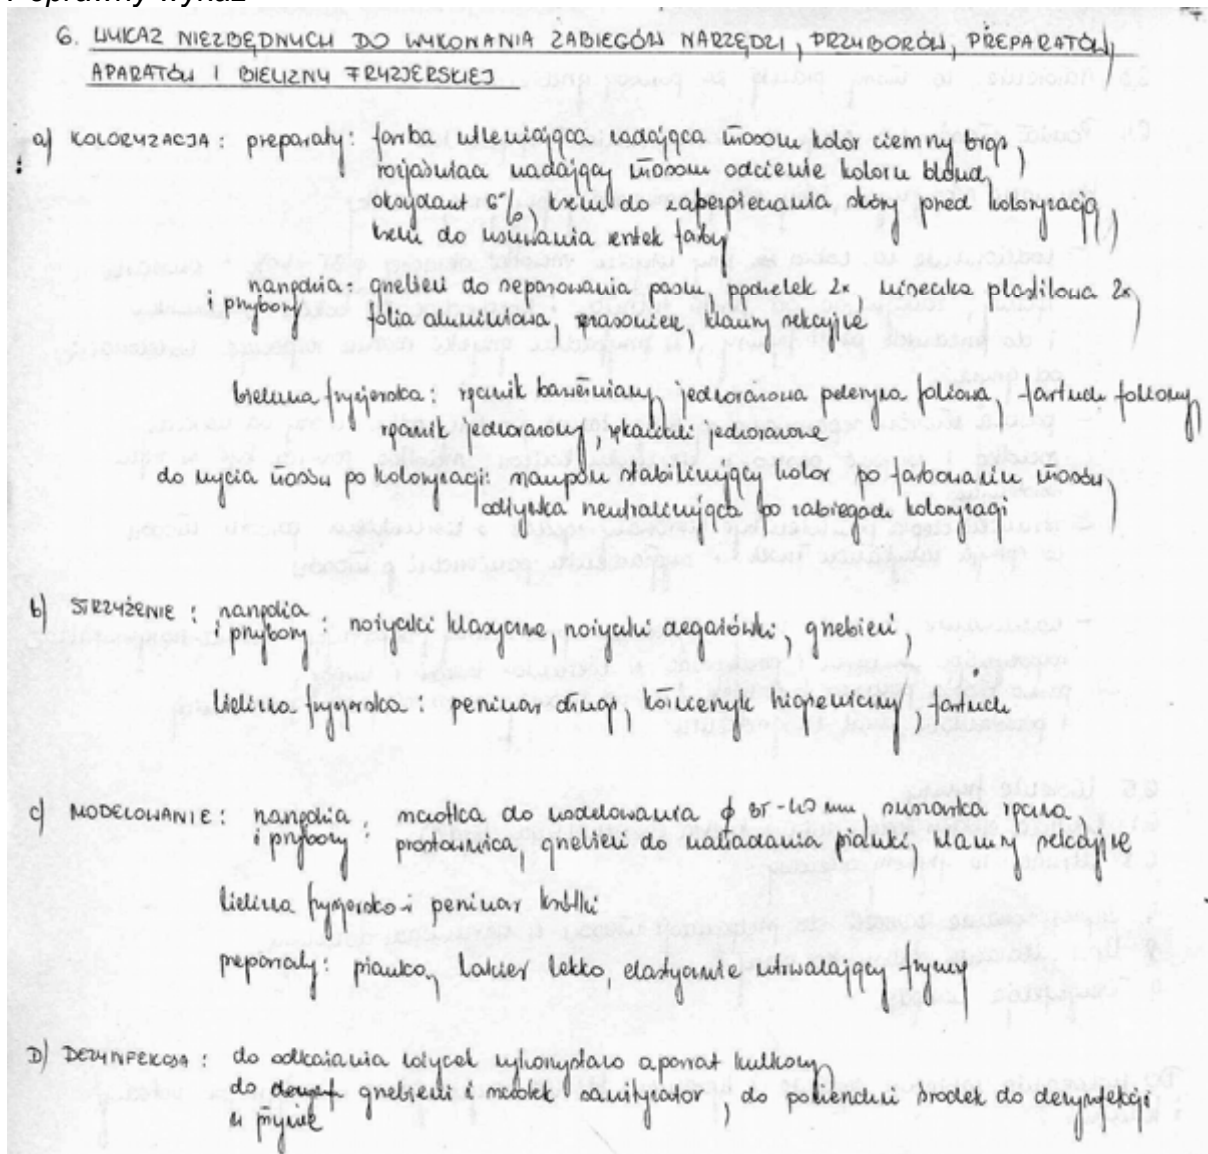 Poprawny wykaz
6. WYKAZ NIEZBĘDNYCH DO WYKONANIA ZABIEGÓW NARZĘDZI, PRZYBORÓW, PREPARATÓW,
APARATÓW I BIELIZNY FRYZJERSKIEJ
a) KOLORYZACJA: preparaty: farba utleniająca nadająca włosom kolor ciemny brąz,
rozjaśniacz nadający włosom odcienie koloru blond,
oksydant 6%, krem do zabezpieczania skóry przed koloryzacją,
krem do usuwania resztek farby
narzędzia: grzebień do separowania pasm, pędzelek 2x, miseczka plastikowa 2x,
i przybory folia aluminiowa, klamry sekcyjne
bielizna fryzjerska: ręcznik bawełniany, jednorazowa peleryna foliowa, fartuch foliowy,
ręcznik jednorazowy, rękawiczki jednorazowe
do mycia włosów po koloryzacji: szampon stabilizujący kolor po farbowaniu włosów,
odżywka neutralizująca po zabiegach koloryzacji
b) STRZYŻENIE: narzędzia
i przybory: nożyczki klasyczne, nożyczki degażówki, grzebień,
bielizna fryzjerska: peniuar długi, kołnierzyk higieniczny, fartuch
c) MODELOWANIE: narzędzia szczotka do modelowania ϕ 35-40 mm, suszarka ręczna
i przybory: prostownica, grzebień do nakładania pianki, klamry sekcyjne
bielizna fryzjerska: peniuar krótki
preparaty: pianka, lakier lekko, elastycznie utrwalający fryzurę
D) DEZYNFEKCJA: do odkażania nożyczek wykorzystano aparat kulkowy
do grzebieni i szczotek sanityzator, do powierzchni środek do dezynfekcji
w płynie